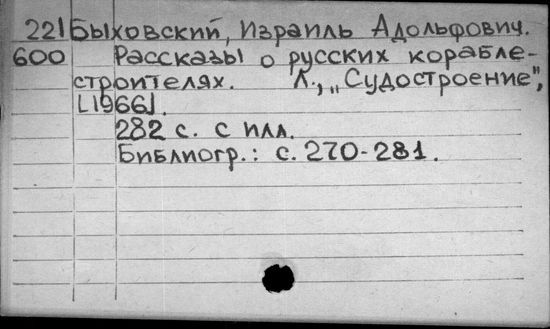 221 Быховский, Израиль Адольфович.
600 Рассказы о русских корабле-
строителях. Л., „Судостроение",
[1966].
282 с. с илл.
Библиогр.: с. 270-281.